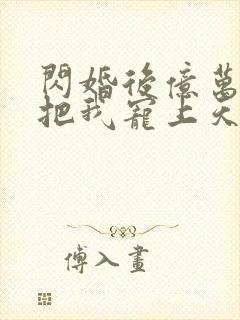 閃婚後億萬
把我寵上天
傅入畫